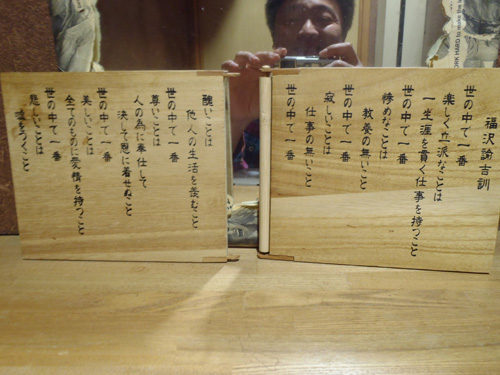 福沢諭吉訓
世の中で一番
楽しく立派なことは
一生涯を貫く仕事を持つこと
世の中で一番
惨めなことは
教養の無いこと
世の中で一番
寂しいことは
仕事の無いこと
世の中で一番
醜いことは
他人の生活を羨むこと
世の中で一番
尊いことは
人の為に奉仕して
決して恩に着せぬこと
世の中で一番
美しいことは
全てのものに愛情を持つこと
世の中で一番
悲しいことは
嘘をつくこと
RK HARD to make the